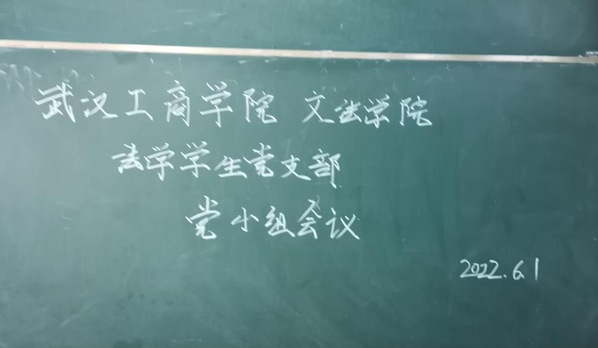 武汉工商学院 文法学院
法学学生党支部
党小组会议
2022.6.1